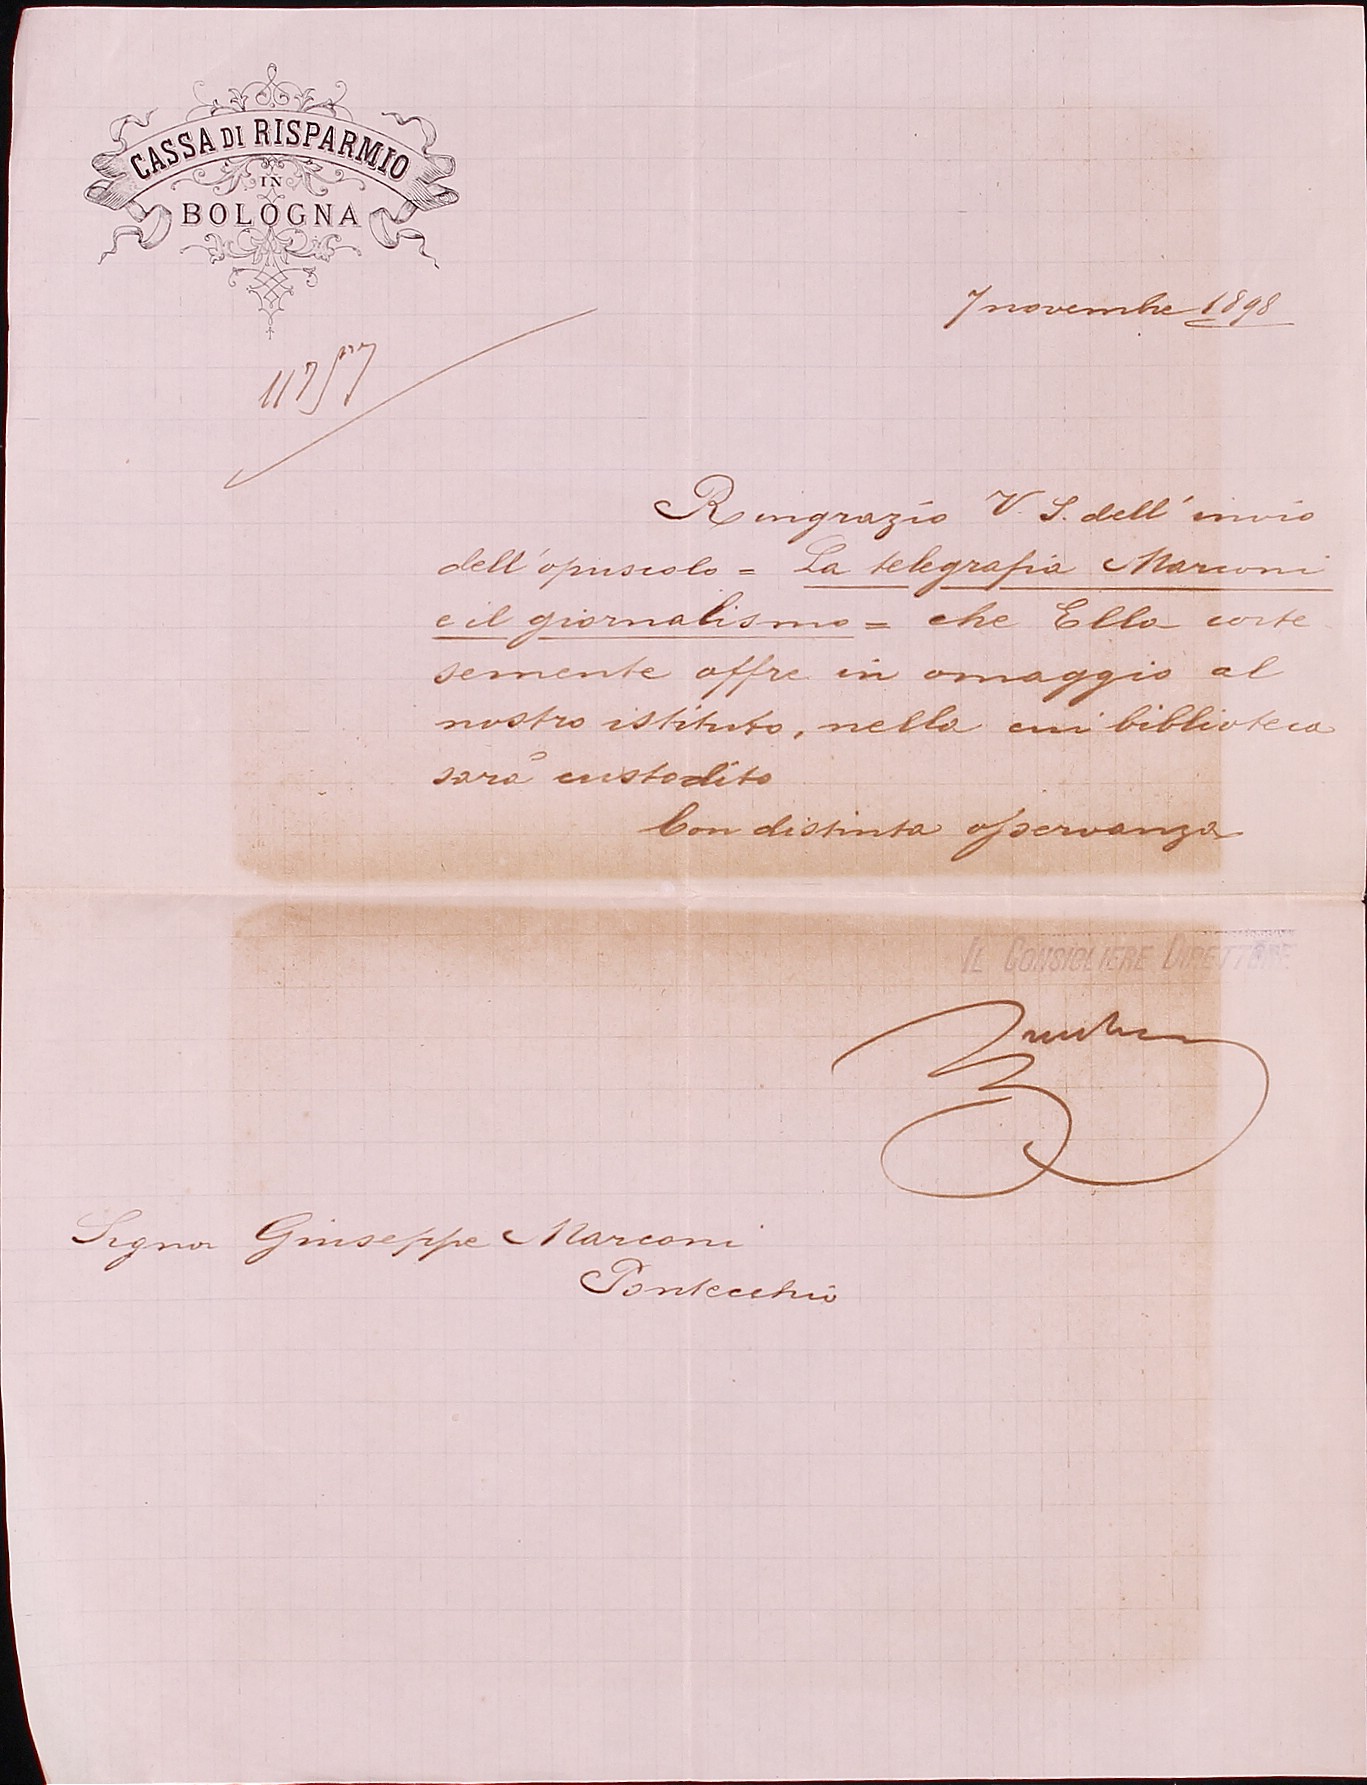 CASSA DI RISPARMIO
IN
BOLOGNA
7 novembre 1898
Ringrazio V. S. dell'invio
dell'opuscolo = La telegrafia Marconi
e il giornalismo = che Ella corte
semente offre in omaggio al
nostro istituto, nella cui biblioteca
sarà custodito
Con distinta osservanza
IL CONSIGLIERE DIRETTORE
Signor Giuseppe Marconi
Pontecchio